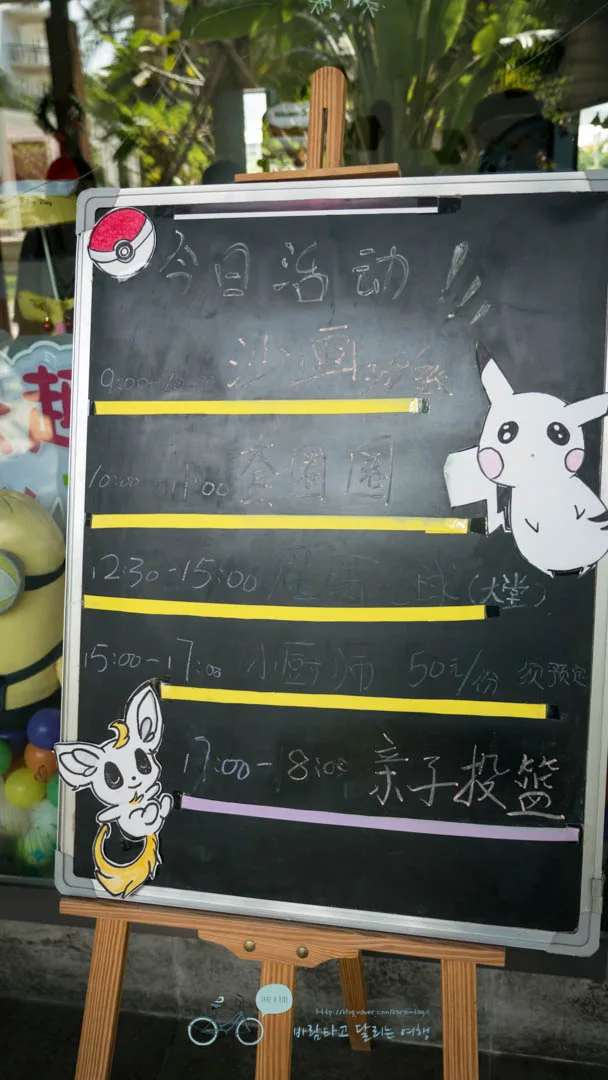 今日活动!!
沙画
10:00-11:00 套圈圈
12:30-15:00 球(大堂)
15:00-17:00 小厨师 50元/份 须预定
17:00-18:00 亲子投篮
TAKE A RIDE
바람타고 달리는 여행